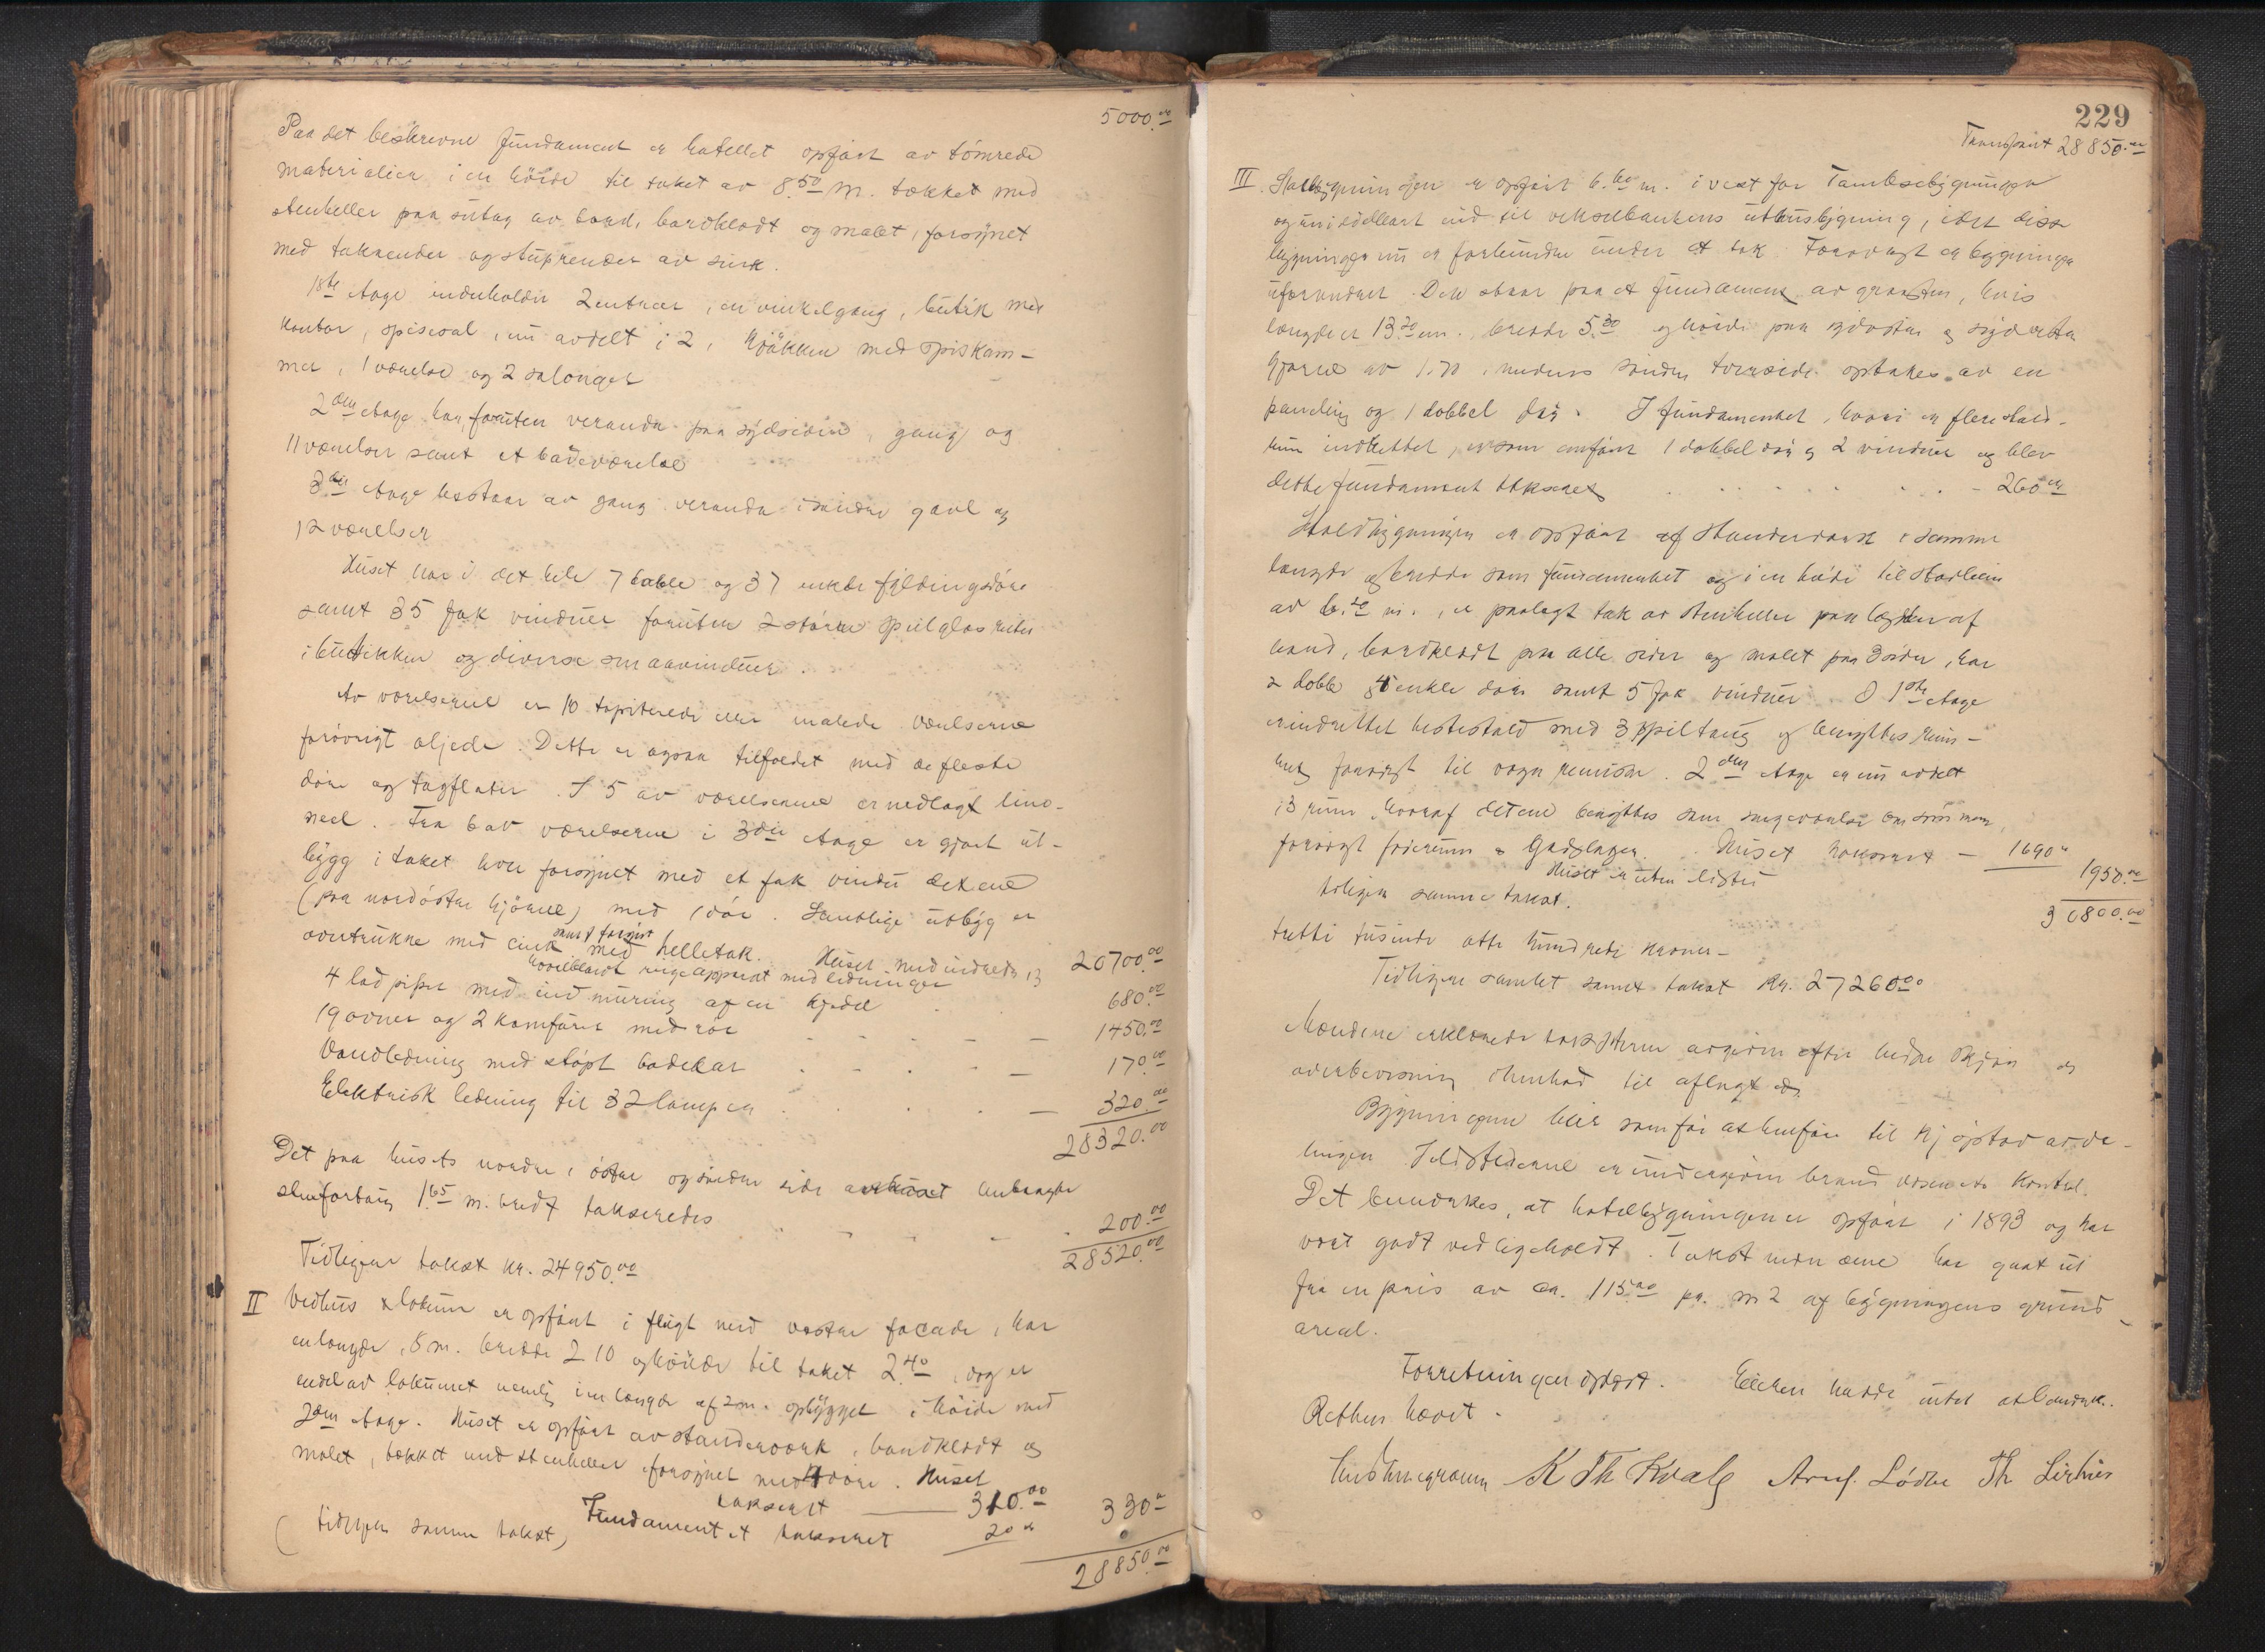 5000.00
Paa det beskrevne fundament er hotellet opført av tømrede
materialier i en høide til taket av 8.50 m. tækket med
stenheller paa sutag av bord, bordklædt og malet, forsynet
med takrender og stuprender av sink.
1ste etage indeholder 2 entreer, en vinkelgang, butik med
kontor, spisesal, nu avdelt i 2, kjøkken med spiskam-
mer, 1 værelse og 2 salonger
2den etage har, foruten veranda paa sydsiden, gang og
11 værelser samt et badeværelse
3die etage bestaar av gang veranda i søndre gavl og
12 værelser
Huset har i det hele 7 doble og 37 enkle fyldingsdøre
samt 35 fak vinduer foruten 2 større speilglas ruter
i butikken og diverse smaavinduer.
Av værelserne er 10 tapiterede eller malede værelserne
forøvrigt oljede. Dette er ogsaa tilfældet med de fleste
døre og tagflater. I 5 av værelserne er nedlagt lino-
neel. Fra 6 av værelserne i 3die etage er gjort ut-
bygg i taket hver forsynet med et fak vindu det ene
(paa nordøstre hjørne) med 1 dør. Samtlige utbyg er
overtrukne med cink samt forøvrigt
med helletak. Huset med indredn. 20700.00
ringeapparat med ledninger
4 lød piper med indmuring af en kjedel 680.00
19 ovner og 2 komfurer med rør 1450.00
Vandledning med støpt badekar 170.00
Elektrisk ledning til 32 lamper 320.00
28320.00
Det paa husets nordre, østre og søndre side anbragte
stenfortaug 1.65 m. bredt takseredes 200.00
28520.00
Tidligere takst kr. 24950.00
II Vedhus & lokum er opført i flugt med vestre facade, har
en længde, 8 m. bredde 2 10 og høide til taket 2.40, dog er
endel av lokumet nemlig i en længde af 2 m. opbygget i høide med
2den etage. Huset er opført av standerverk, bordklædt og
malet, tækket med stenheller forsynet med 4 døre. Huset
taksert 310.00 330.00
(tidligere samme takst) Fundamentet taksert 20.00
28850.00
229
Transport 28850.00
III. Staldbygningen er opført 6.60 m. i vest for
og umiddelbart ind til vekselbankens uthusbygning, idet disse
bygninger nu er forbundne under et tak. Forøvrigt er bygningen
uforandret. Den staar paa et fundament av graasten, hvis
længde er 13.30 m. bredde 5.30 og høide paa sydøstre og sydvestre
hjørne av 1.70, medens søndre optakes av en
paneling og 1 dobbel dør. I fundamentet, hvori er flere stald-
rum indrettet, er som anført 1 dobbel dør og 2 vinduer og blev
dette fundament takseret 260.00
Staldbygningen er opført af standerværk i samme
længde og bredde som fundamentet og i en høide til
av m., er paalagt tak av stenheller paa lægter af
bord, bordklædt paa alle sider og malet paa 3 sider, har
2 doble 4 enkle døre samt 5 fak vinduer. I 1ste etage
er indrettet hestestald med 3 spiltaug og benyttes rum-
met forøvrigt til vogn remisse. 2den etage er nu avdelt
i 3 rum hvoraf det ene benyttes som
forøvrigt foderrum & Huset takseret 1690.00
Huset er uten lister 1950.00
tidligere samme takst. 30800.00
tretti tusinde otte hundrede kroner
Tidligere samlet samt takst Kr. 27260.00
Mændene erklærede taksterne avgivne efter bedste skjøn og
overbevisning i henhold til aflagt ed.
Bygningerne blir som før at henføre til kjøpstad avde-
lingen. Ildstederne er undergivne brandvæsenets kontrol.
Det bemerkes, at hotelbygningen er opført i 1893 og har
vært godt vedligeholdt. Takstmændene har gaat ut
fra en pris av ca. 115.00 pr. m2 af bygningens grund-
areal.
Forretningen oplæst. Eieren hadde intet at bemerke.
Retten hævet.
K Th Kvale